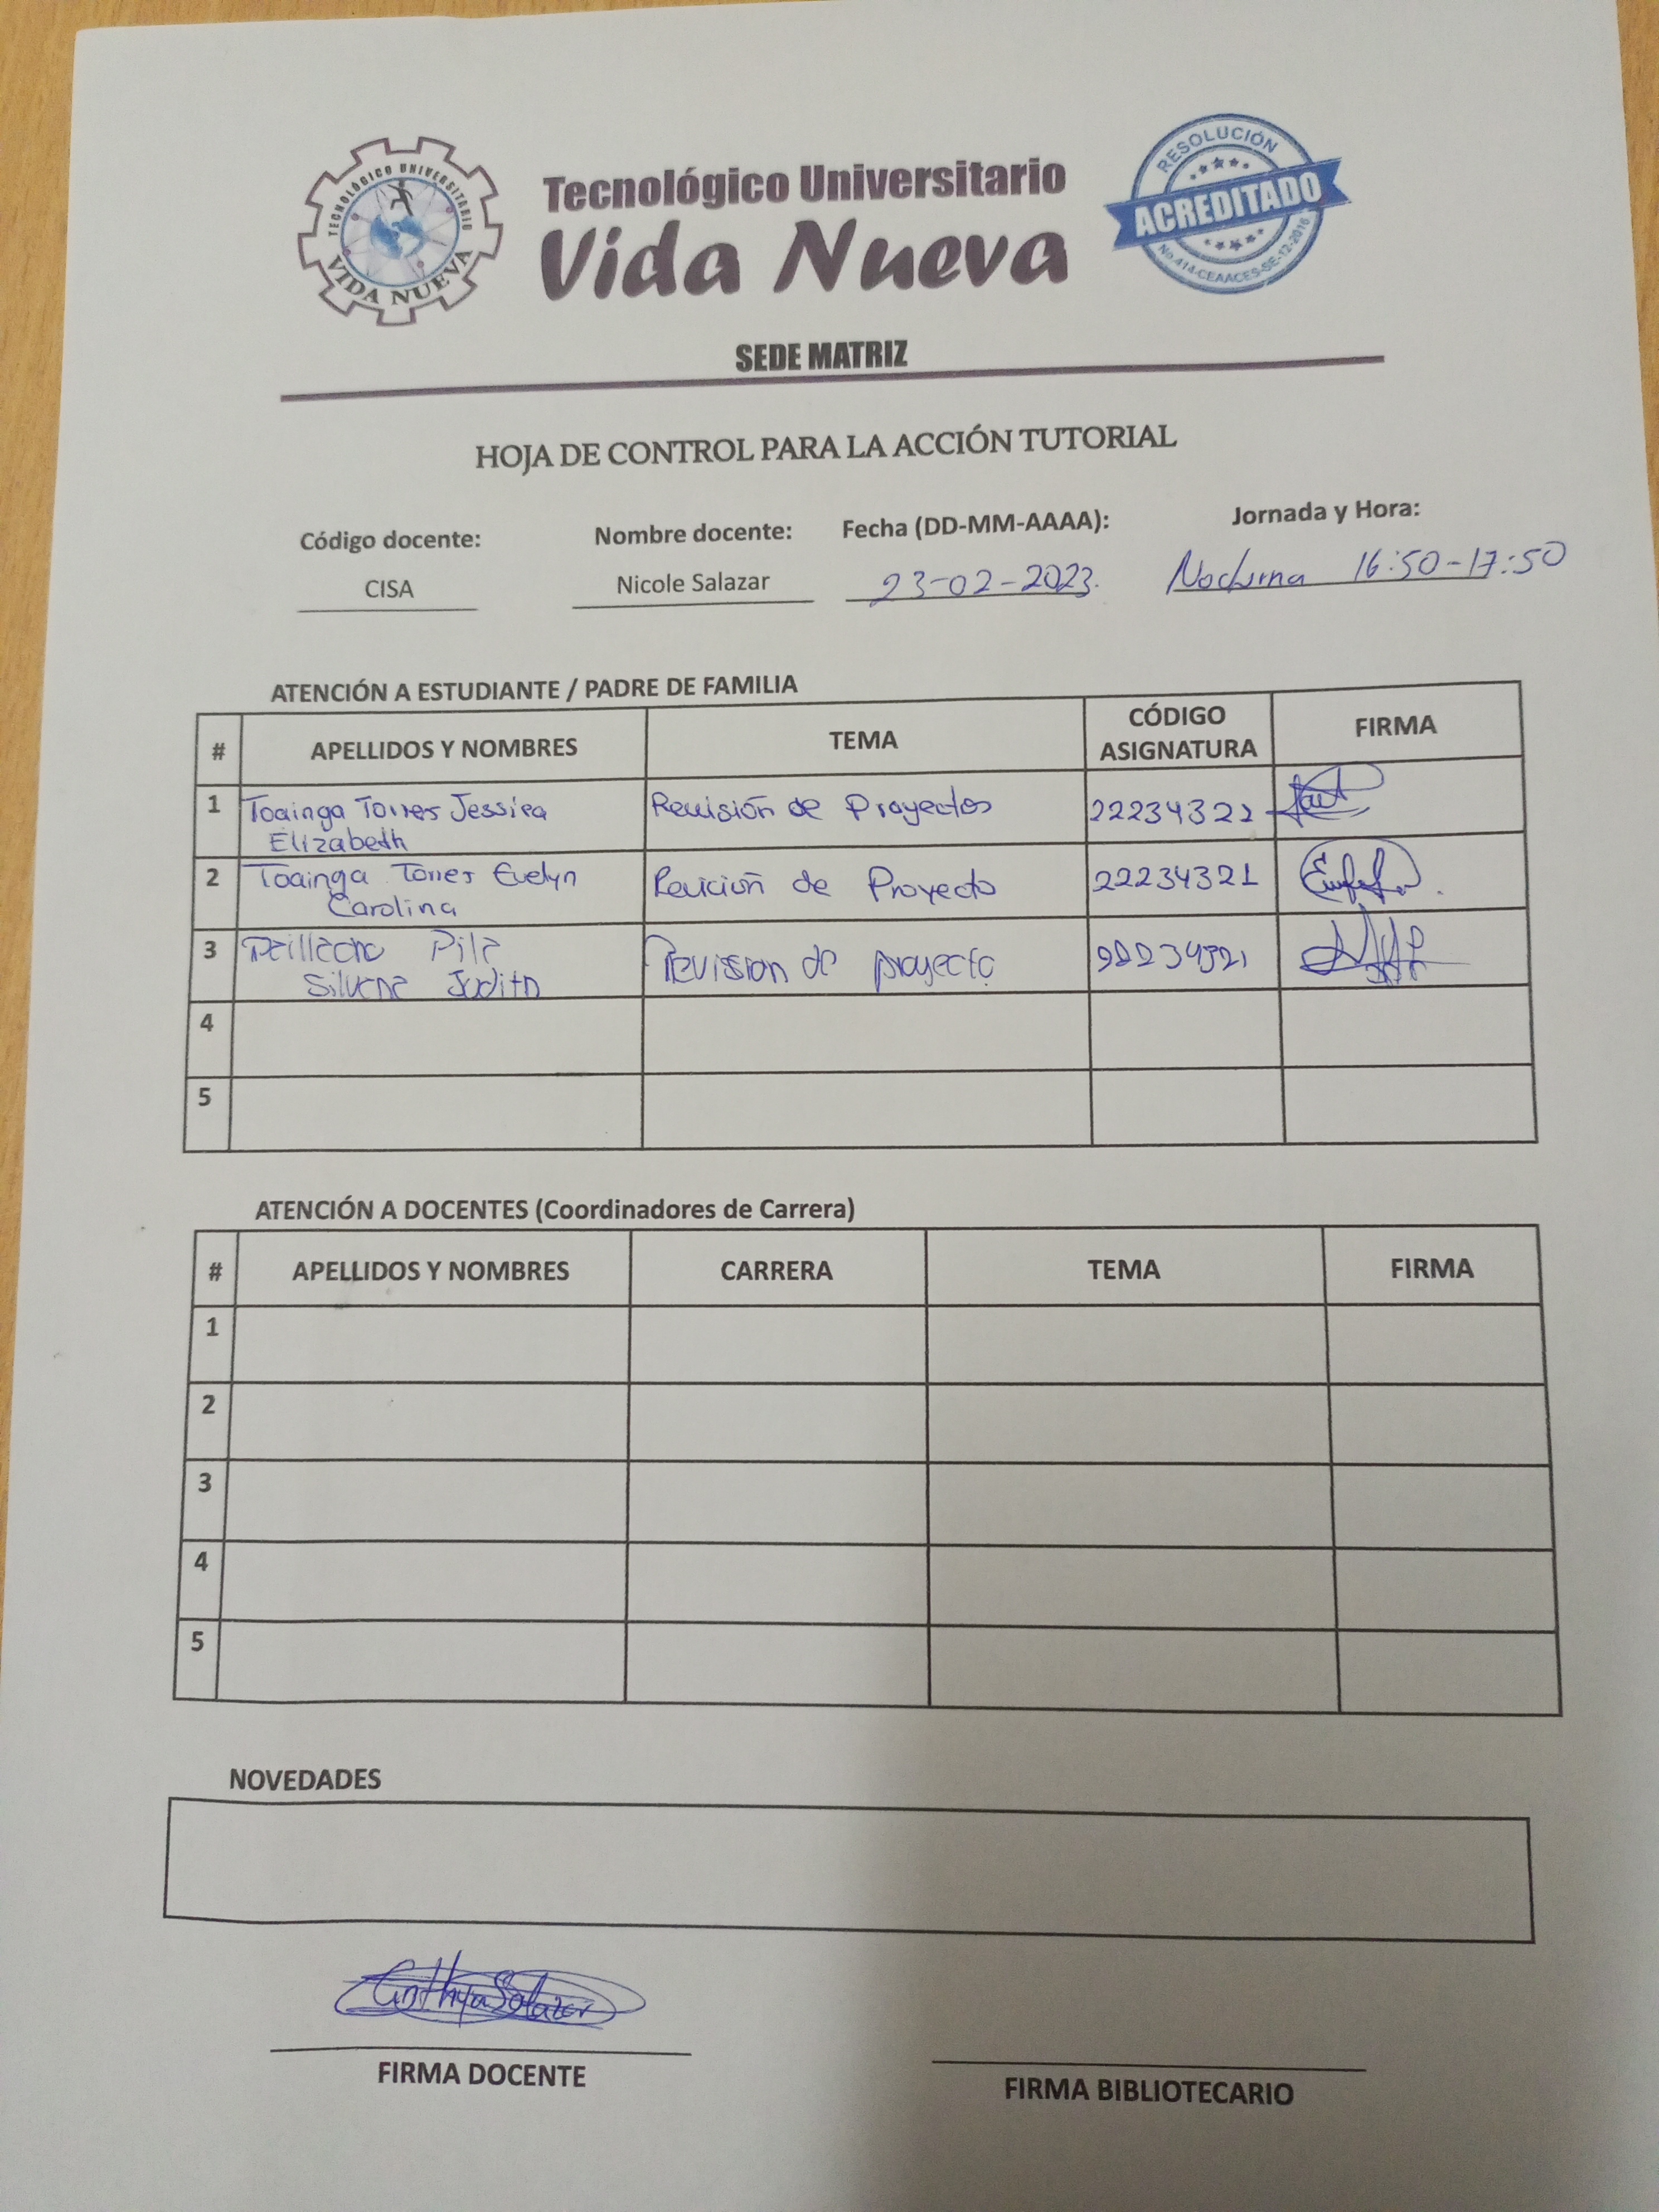 TECNOLÓGICO UNIVERSITARIO
VIDA NUEVA
Tecnológico Universitario
Vida Nueva
RESOLUCIÓN
ACREDITADO
No.414-CEAACES-SE-12-2016
SEDE MATRIZ
HOJA DE CONTROL PARA LA ACCIÓN TUTORIAL
Código docente: Nombre docente: Fecha (DD-MM-AAAA): Jornada y Hora:
CISA Nicole Salazar 23-02-2023. Nocturna 16:50-17:50
ATENCIÓN A ESTUDIANTE / PADRE DE FAMILIA
# APELLIDOS Y NOMBRES TEMA CÓDIGO ASIGNATURA FIRMA
1 Toainga Torres Jessica Revisión de Proyectos 22234321
Elizabeth
2 Toainga Torres Evelyn Revición de Proyecto 22234321
Carolina
3 Pila Revission de proyecto
Silvana Judith
4
5
ATENCIÓN A DOCENTES (Coordinadores de Carrera)
# APELLIDOS Y NOMBRES CARRERA TEMA FIRMA
1
2
3
4
5
NOVEDADES
Cinthya Salazar
FIRMA DOCENTE
FIRMA BIBLIOTECARIO